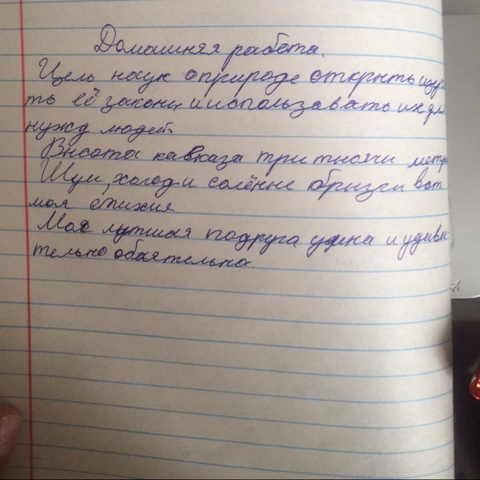 Домашняя работа.
Цель наук о природе открыть изу
ть её законы и использовать их дл
нужд людей.
Высоты кавказа три тысячи метр
Шум, холод и солёные брызги вот
моя стихия.
Моя лутшая подруга умна и удиви
тельно обаятельна.